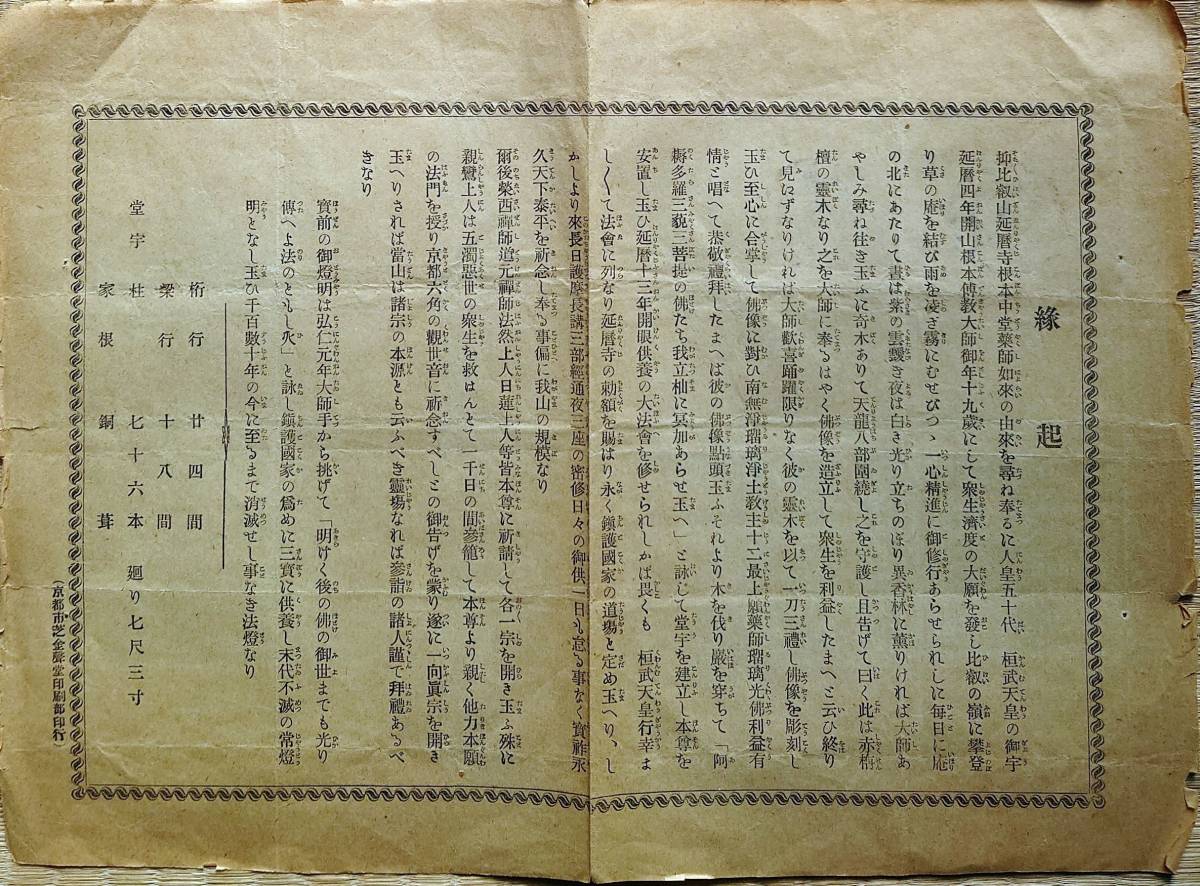 緣起
抑比叡山延暦寺根本中堂藥師如來の由來を尋ね奉るに人皇五十代　桓武天皇の御宇
延暦四年開山根本傳教大師御年十九歲にして衆生濟度の大願を發し比叡の嶺に攀登
り草の庵を結び雨を凌ぎ霧にむせびつゝ一心精進に御修行あらせられしに每日に庵
の北にあたりて晝は紫の雲靉き夜は白き光り立ちのぼり異香林に薰りければ大師あ
やしみ尋ね往き玉ふに奇木ありて天龍八部圍繞し之を守護し且告げて曰く此は赤栴
檀の靈木なり之を大師に奉るはやく佛像を造立して衆生を利益したまへと云ひ終り
て見ゐずなりければ大師歡喜踊躍限りなく彼の靈木を以て一刀三禮し佛像を彫刻し
玉ひ至心に合掌して佛像に對ひ南無淨瑠璃淨土敎主十二最上願藥師瑠璃光佛利益有
情と唱へて恭敬禮拜したまへば彼の佛像點頭玉ふそれより木を伐り巖を穿ちて「阿
耨多羅三藐三菩提の佛たち我立杣に冥加あらせ玉へ」と詠じて堂宇を建立し本尊を
安置し玉ひ延暦十三年開眼供養の大法會を修せられしかば畏くも　桓武天皇行幸ま
しくて法會に列なり延暦寺の勅額を賜はり永く鎭護國家の道場と定め玉へり、し
かしより來長日護摩長講三部經通夜三座の密修日々の御供一日も怠る事なく寳祚永
久天下泰平を祈念し奉る事偏に我山の規模なり
爾後榮西禪師道元禪師法然上人日蓮上人等皆本尊に祈請して各一宗を開き玉ふ殊に
親鸞上人は五濁惡世の衆生を救はんとて一千日の間參籠して本尊より親く他力本願
の法門を授り京都六角の觀世音に祈念すべしとの御告げを蒙り遂に一向眞宗を開き
玉へりされば當山は諸宗の本源とも云ふべき靈塲なれば參詣の諸人謹で拜禮あるべ
きなり
寳前の御燈明は弘仁元年大師手から挑げて「明けく後の佛の御世までも光り
傳へよ法のともし火」と詠し鎭護國家の爲めに三寳に供養し末代不滅の常燈
明となし玉ひ千百數十年の今に至るまで消滅せし事なき法燈なり
桁行　廿四間
梁行　十八間
堂宇　柱　七十六本　廻り七尺三寸
家根　銅葺
（京都市芝金聲堂印刷部印行）